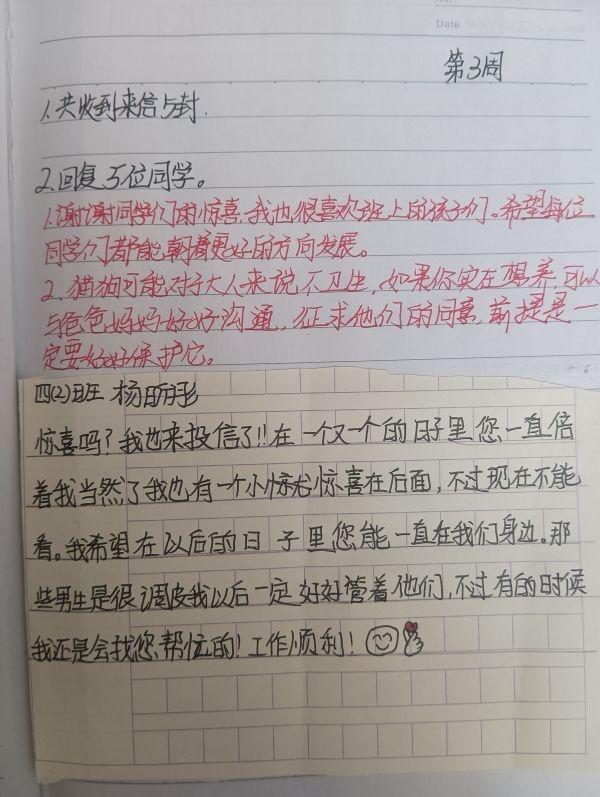 Date
第3周
1.共收到来信5封.
2.回复5位同学。
1.谢谢同学们的惊喜,我也很喜欢班上的孩子们。希望每位
同学们都能朝着更好的方向发展。
2.猫狗可能对于大人来说不卫生,如果你实在想养,可以
与爸爸妈妈好好沟通,征求他们的同意,前提是一
定要好好保护它。
四(2)班 杨昕彤
惊喜吗?我也来投信了!!在一个又一个的日子里您一直倍
着我当然了我也有一个小惊惊喜在后面,不过现在不能
看。我希望在以后的日子里您能一直在我们身边。那
些男生是很调皮我以后一定好好管着他们,不过有的时候
我还是会找您帮忙的!工作顺利!